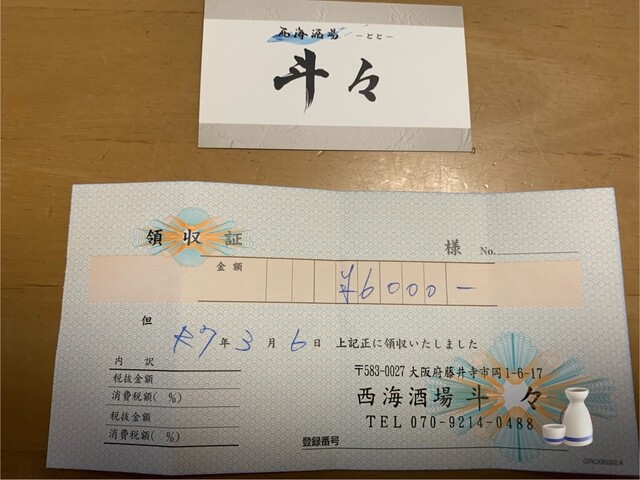 西海酒場 －とと－
斗々
領収証
様 No.
金額 ¥6000－
但
R7年3月6日 上記正に領収いたしました
内訳
税抜金額
消費税額( %)
税抜金額
消費税額( %)
〒583-0027 大阪府藤井寺市岡1-6-17
西海酒場 斗々
TEL 070-9214-0488
登録番号